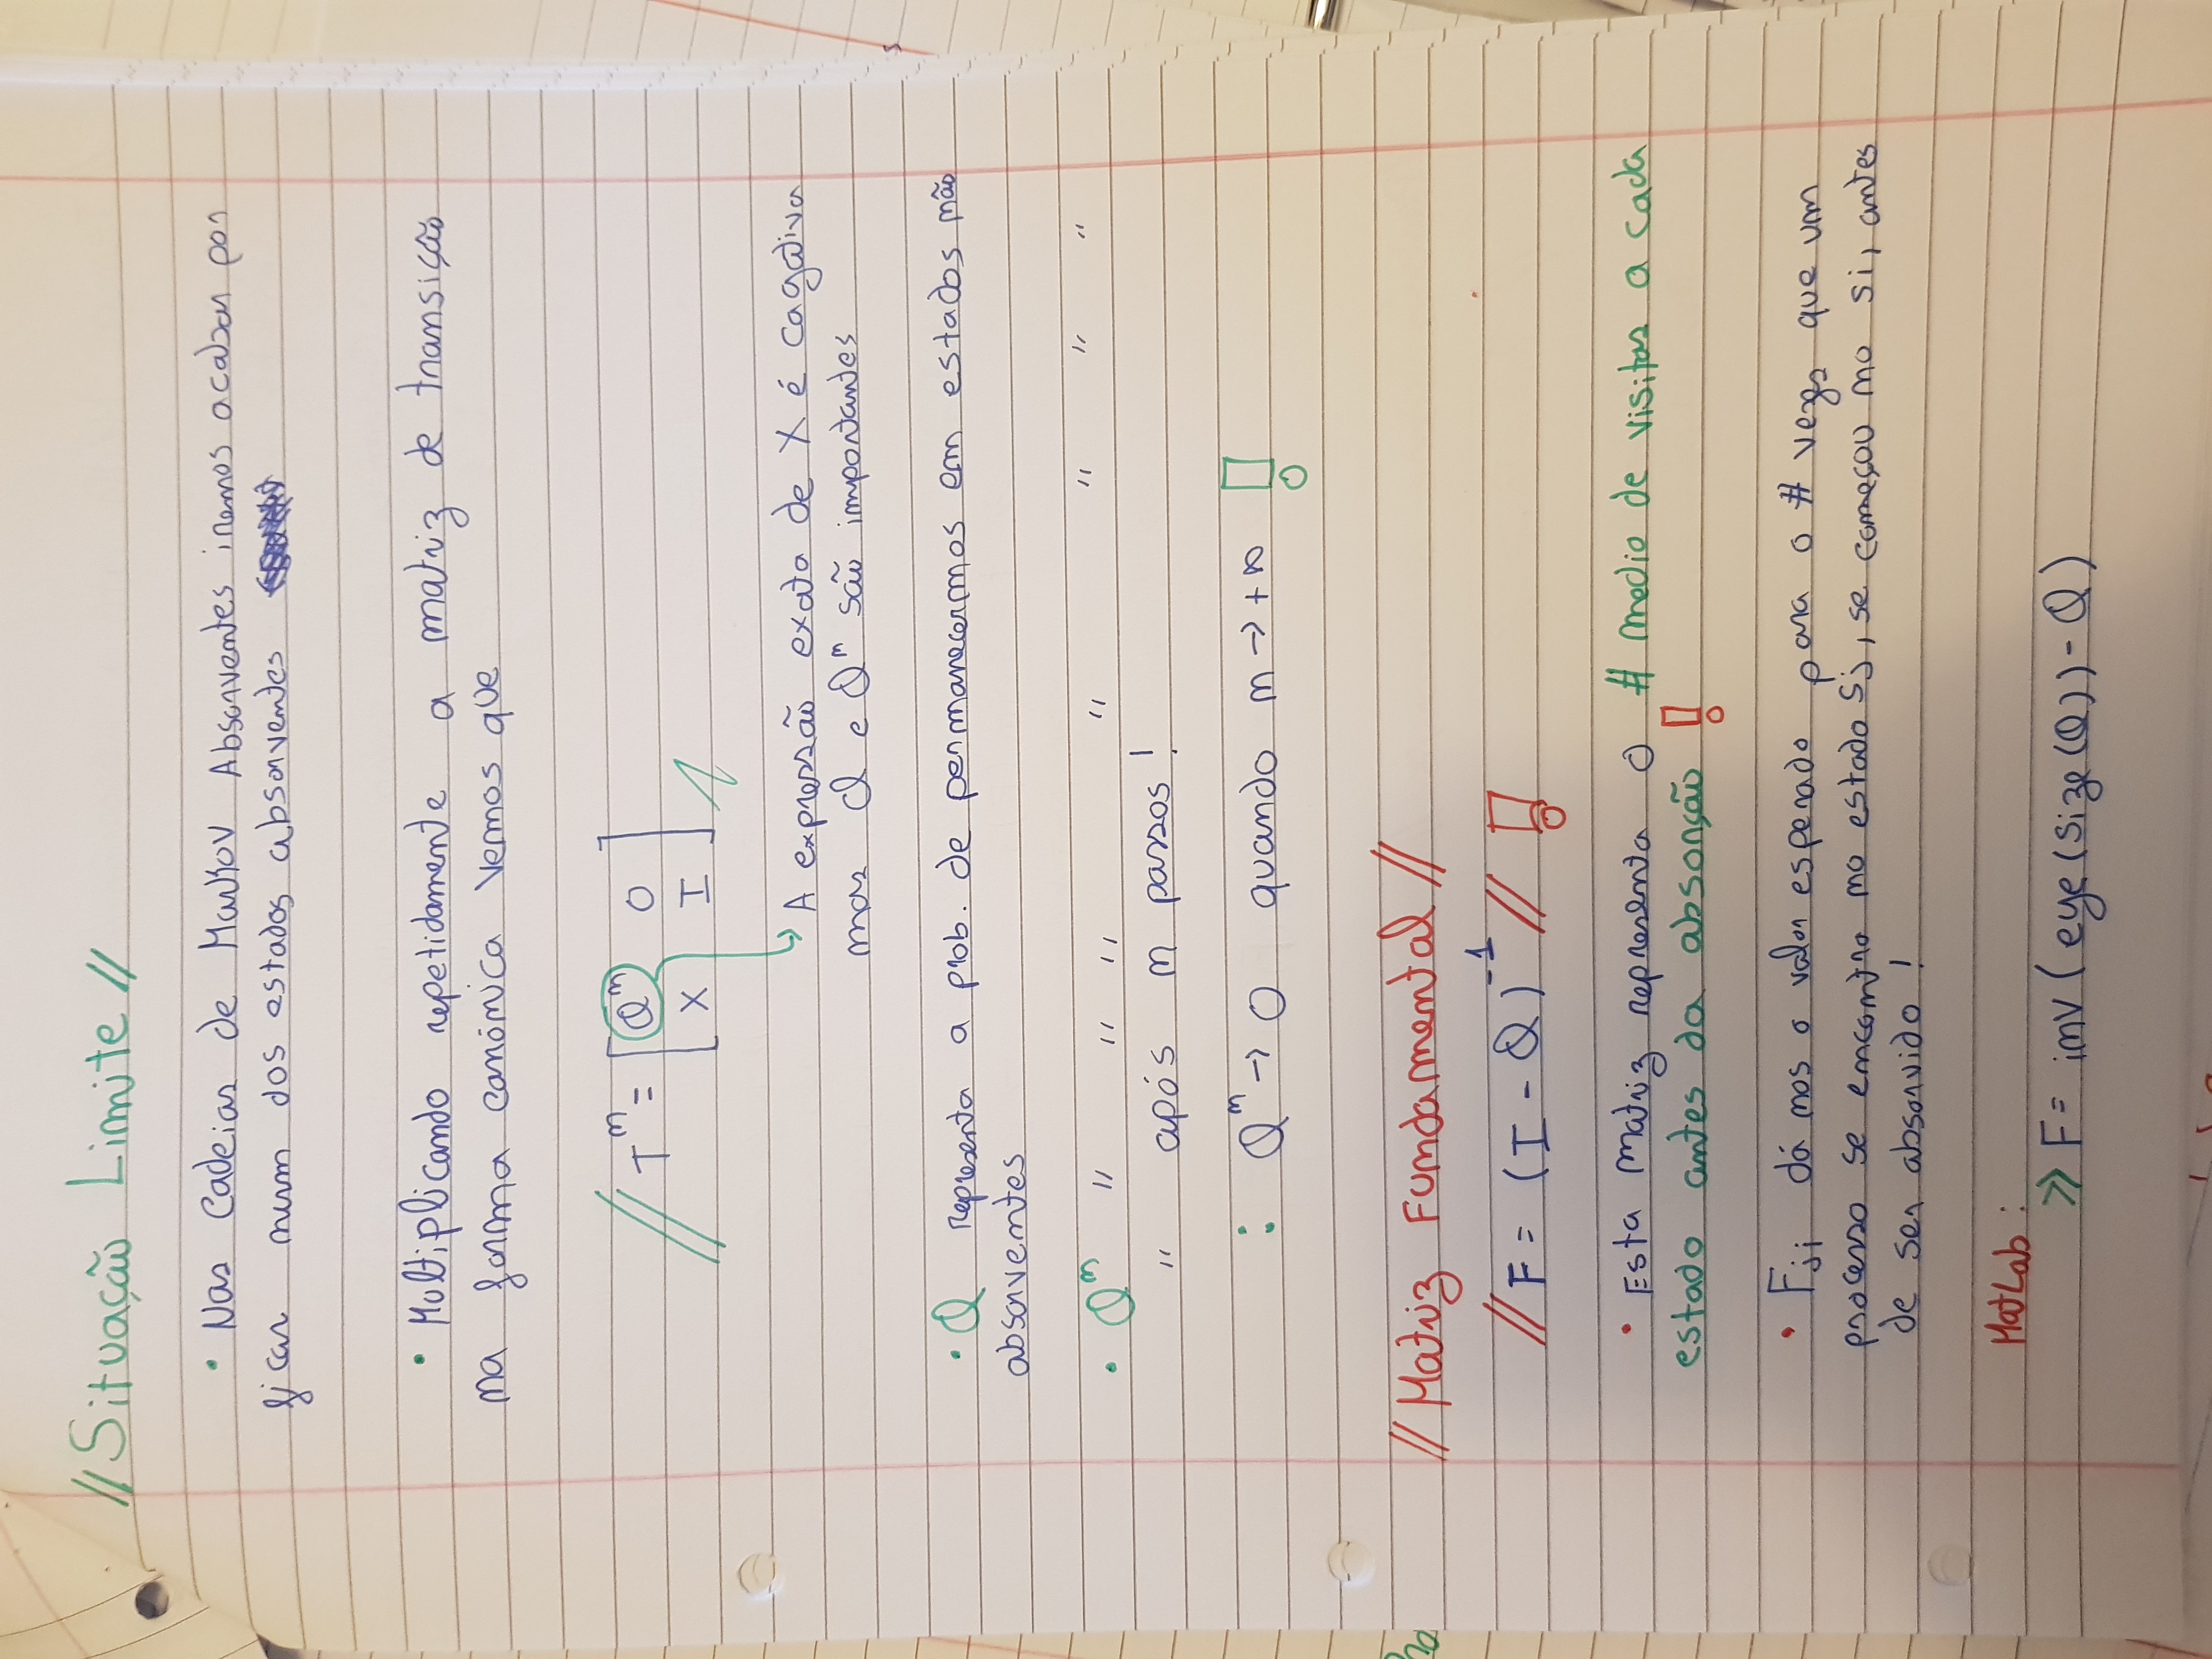 // Situação Limite //
• Nas Cadeias de Markov Absorventes iremos acabar por
ficar num dos estados absorventes
• Multiplicando repetidamente a matriz de transição
na forma canónica vemos que
// Tⁿ = [ Qⁿ 0
X I ] //
↳ A expressão exata de X é cagativa
mas Q e Qⁿ são importantes
• Q representa a prob. de permanecermos em estados não
absorventes
• Qⁿ " " " " " " "
" após n passos!
: Qⁿ → 0 quando n → +∞ !
// Matriz Fundamental //
// F = (I - Q)⁻¹ // !
• Esta matriz representa o # medio de visitas a cada
estado antes da absorção !
• Fji dá nos o valor esperado para o # vezes que um
processo se encontra no estado Sj, se começou no si, antes
de ser absorvido !
MatLab :
>> F = inv (eye (size (Q)) - Q)